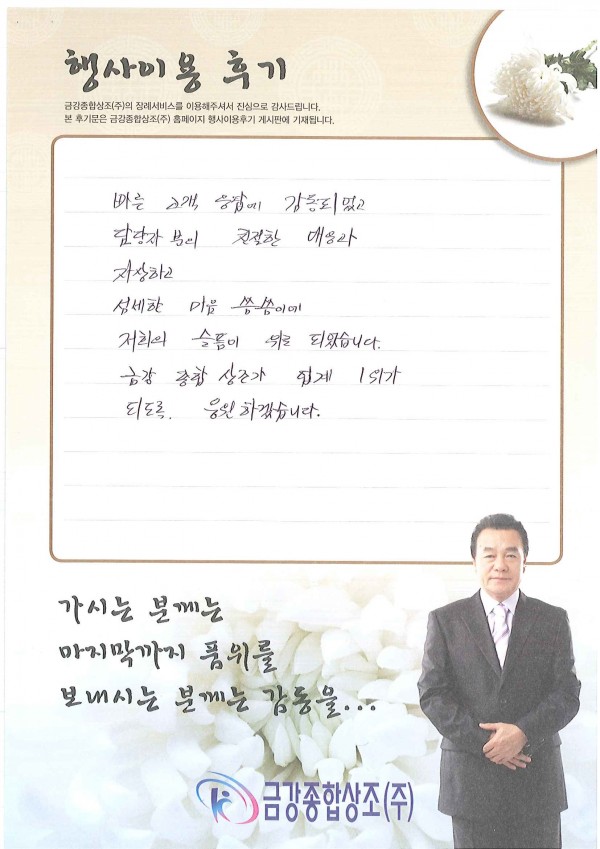 행사이용 후기
금강종합상조(주)의 장례서비스를 이용해주셔서 진심으로 감사드립니다.
본 후기문은 금강종합상조(주) 홈페이지 행사이용후기 게시판에 기재됩니다.
빠른 고객 응답에 감동되었고
담당자 분의 친절한 대응과
자상하고
섬세한 마음 씀씀이에
저희의 슬픔이 위로 되었습니다.
금강 종합 상조가 업계 1위가
되도록. 응원하겠습니다.
가시는 분께는
마지막까지 품위를
보내시는 분께는 감동을...
금강종합상조(주)